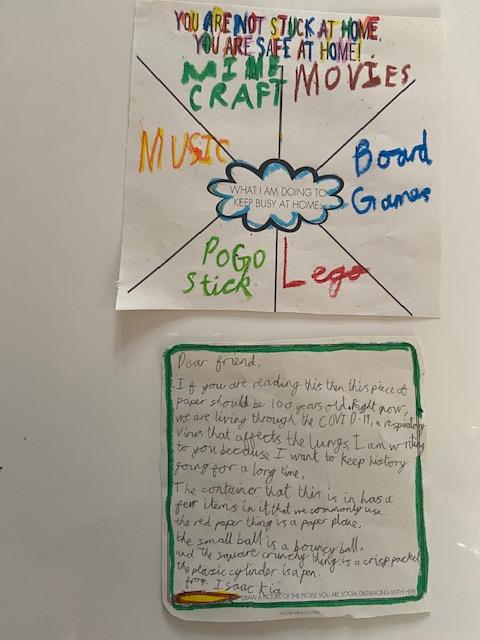 YOU ARE NOT STUCK AT HOME,
YOU ARE SAFE AT HOME!
MINE
CRAFT
MOVIES
MUSIC
Board
Games
WHAT I AM DOING TO
KEEP BUSY AT HOME:
POGO
Stick
Lego
Dear friend,
If you are reading this then this piece of
paper should be 100 years old. Right now,
we are living through the COVID-19, a respiratory
virus that affects the lungs. I am writing
to you because I want to keep history
going for a long time,
The container that this is in has a
few items in it that we commonly use.
the red paper thing is a paper plane,
the small ball is a bouncy ball,
and the square crunchy thing is a crisp packet
the plastic cylinder is a pen.
from Isaac Kia
DRAW A PICTURE OF THE PEOPLE YOU ARE SOCIAL DISTANCING WITH HERE